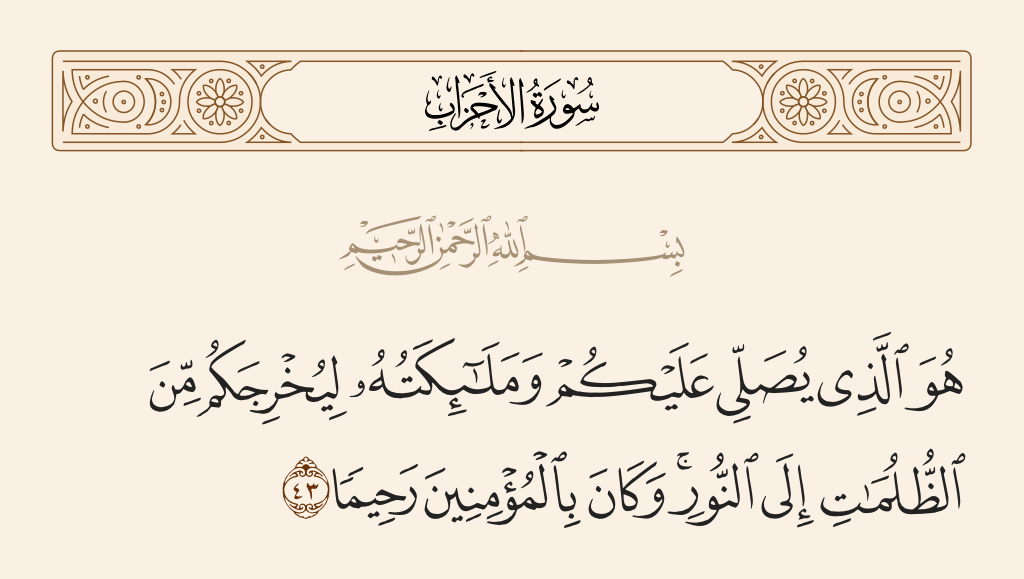 سُورَةُ الأَحْزَابِ
بِسْمِ ٱللَّهِ ٱلرَّحْمَٰنِ ٱلرَّحِيمِ
هُوَ ٱلَّذِى يُصَلِّى عَلَيْكُمْ وَمَلَـٰٓئِكَتُهُۥ لِيُخْرِجَكُم مِّنَ
ٱلظُّلُمَـٰتِ إِلَى ٱلنُّورِ ۚ وَكَانَ بِٱلْمُؤْمِنِينَ رَحِيمًا ٤٣